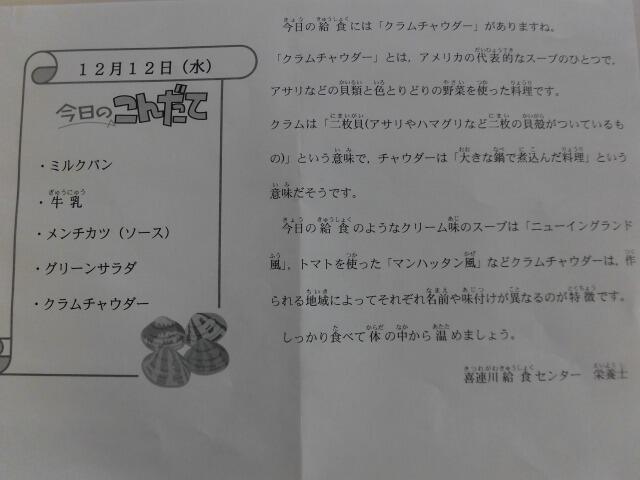 12月12日(水)
今日のこんだて
・ミルクパン
・牛乳
・メンチカツ(ソース)
・グリーンサラダ
・クラムチャウダー
今日の給食には「クラムチャウダー」がありますね。
「クラムチャウダー」とは,アメリカの代表的なスープのひとつで,
アサリなどの貝類と色とりどりの野菜を使った料理です。
クラムは「二枚貝(アサリやハマグリなど二枚の貝殻がついているも
の)」という意味で,チャウダーは「大きな鍋で煮込んだ料理」という
意味だそうです。
今日の給食のようなクリーム味のスープは「ニューイングランド
風」,トマトを使った「マンハッタン風」などクラムチャウダーは,作
られる地域によってそれぞれ名前や味付けが異なるのが特徴です。
しっかり食べて体の中から温めましょう。
喜連川給食センター 栄養士